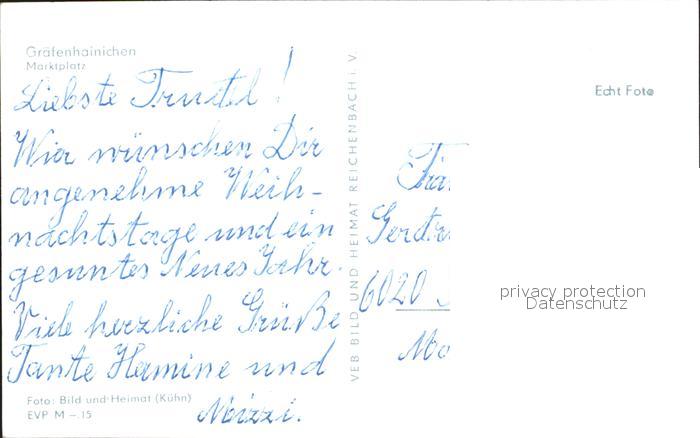 Gräfenhainichen
Marktplatz
Liebste Trudel!
Wir wünschen Dir
angenehme Weih-
nachtstage und ein
gesuntes Neues Jahr.
Viele herzliche Grüße
Tante Hermine und
Mizzi.
Foto: Bild und Heimat (Kühn)
EVP M –.15
VEB BILD UND HEIMAT REICHENBACH i. V.
Echt Foto
6020
privacy protection
Datenschutz